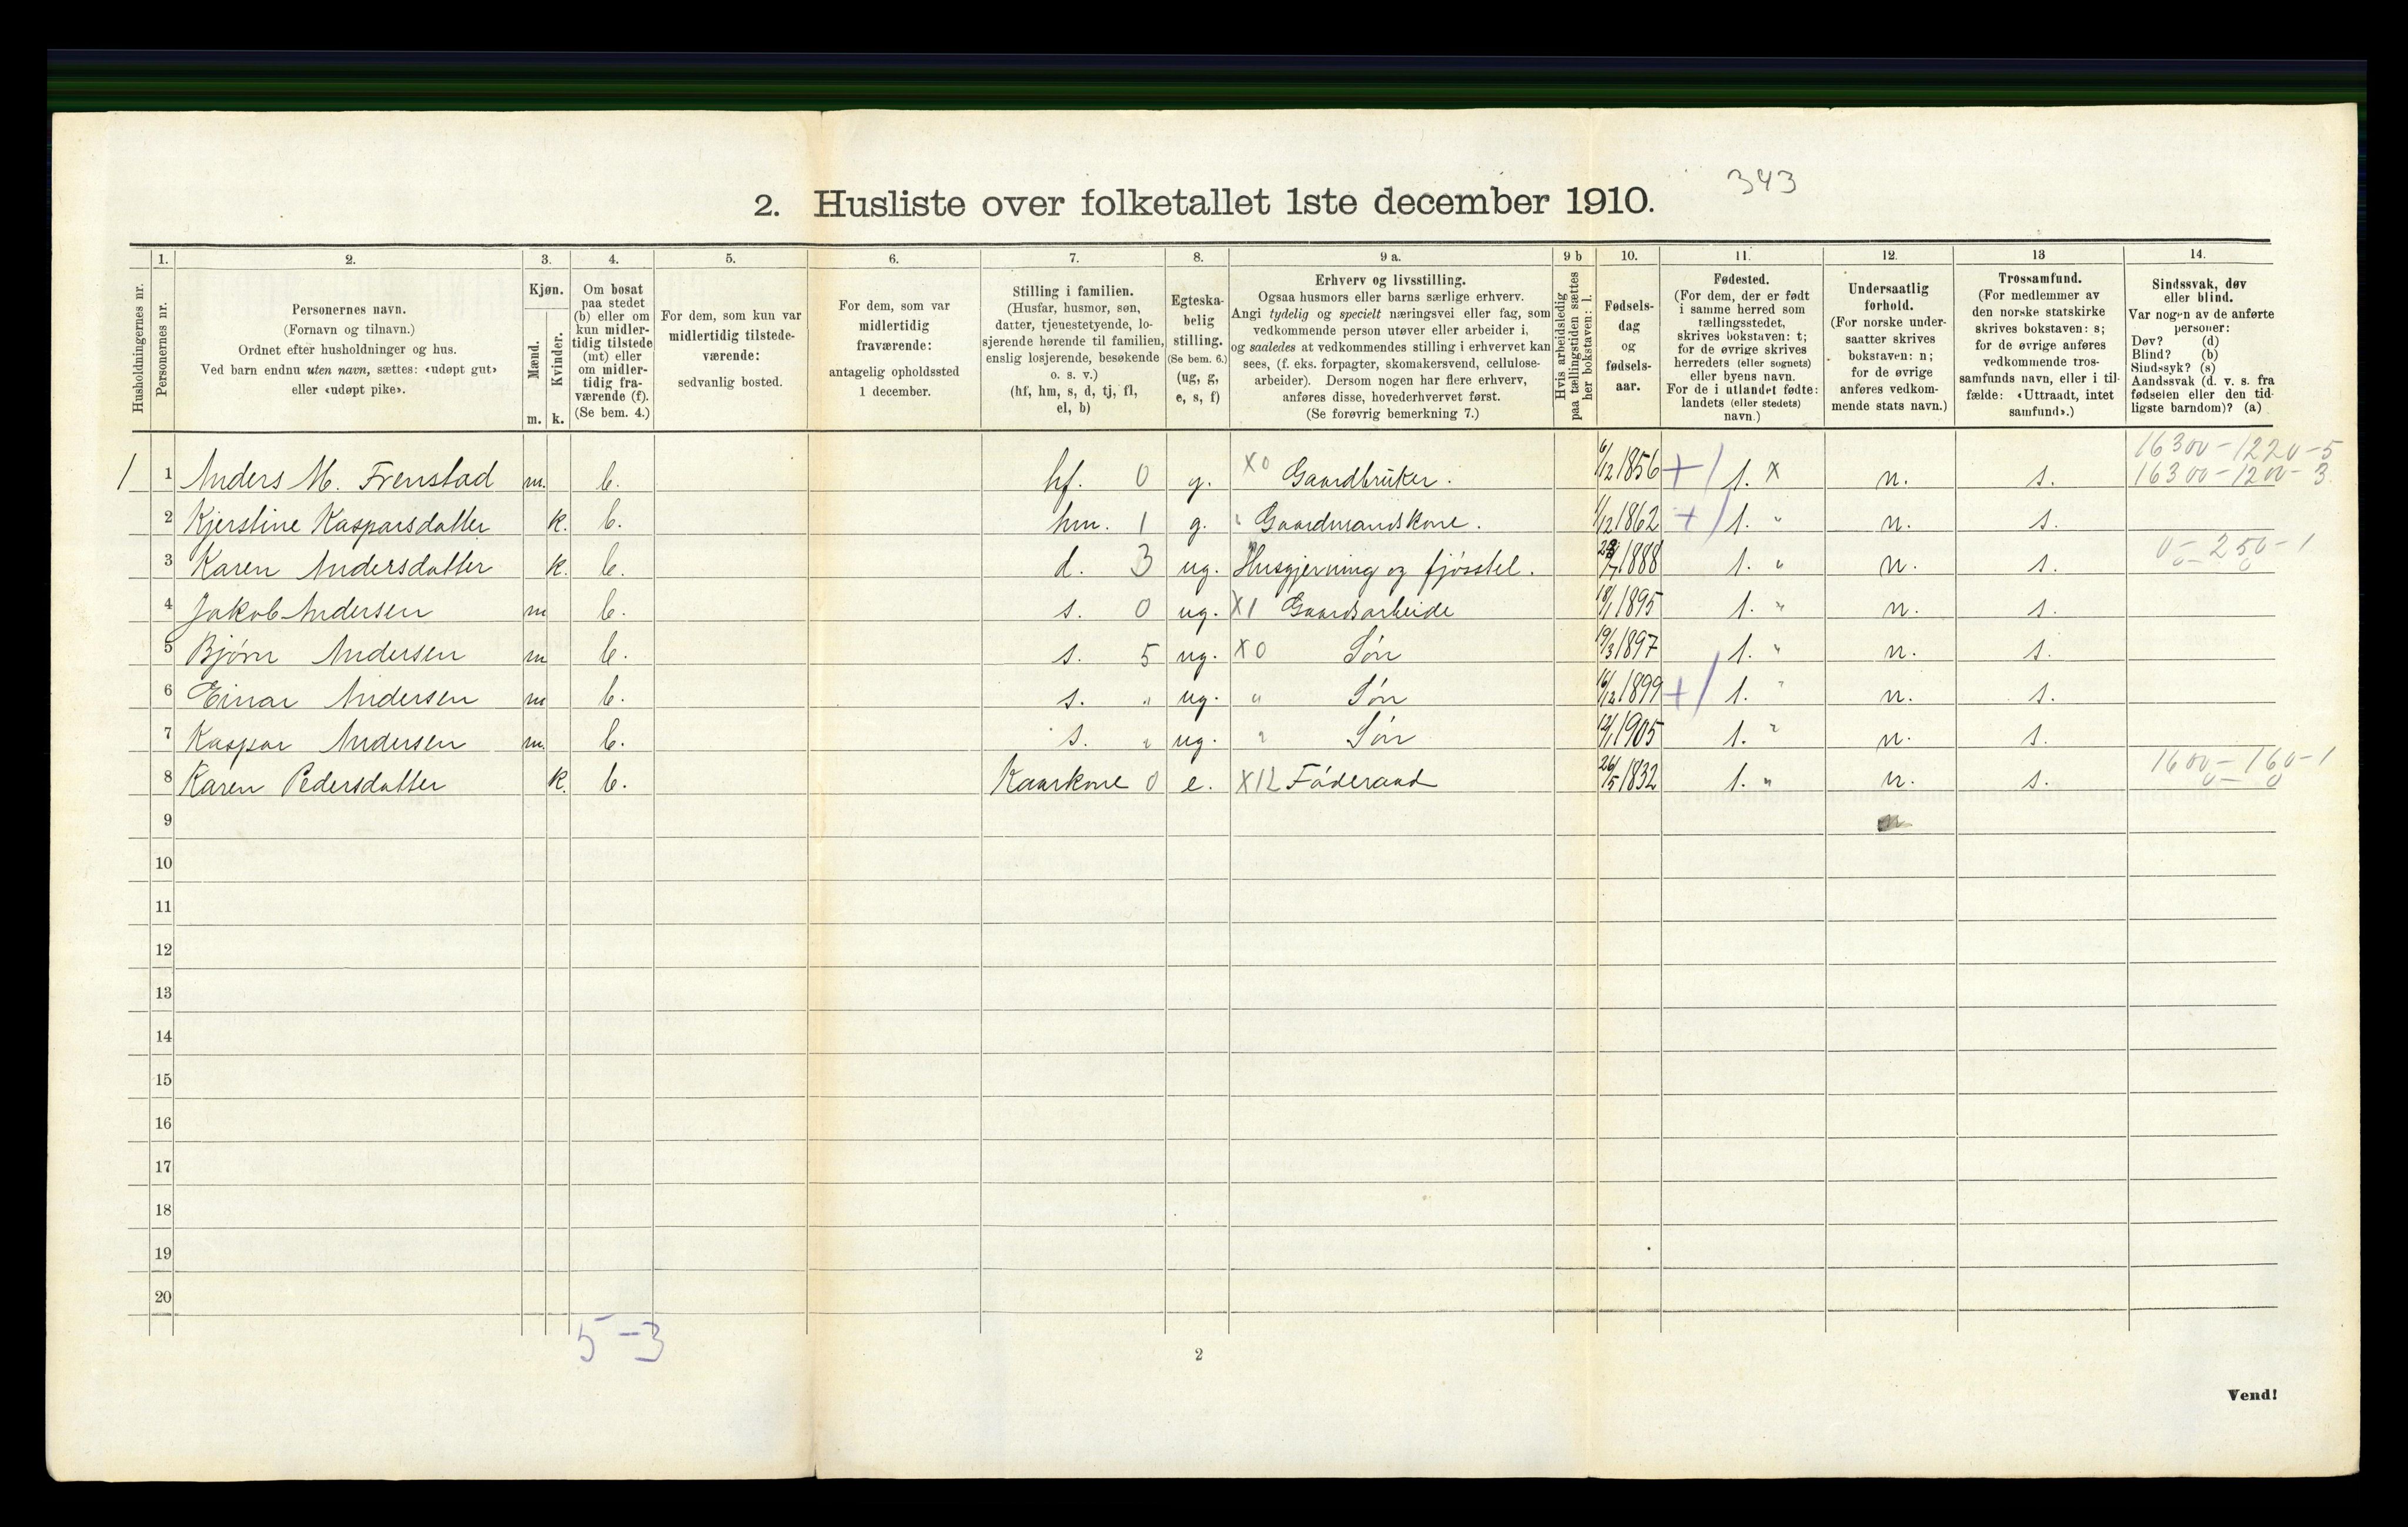 343
2. Husliste over folketallet 1ste december 1910.
Husholdningernes nr.
1.
Personernes nr.
2.
Personernes navn.
(Fornavn og tilnavn.)
Ordnet efter husholdninger og hus.
Ved barn endnu uten navn, sættes: «udøpt gut»
eller «udøpt pike».
3.
Kjøn.
Mænd.
Kvinder.
m. k.
4.
Om bosat
paa stedet
(b) eller om
kun midler-
tidig tilstede
(mt) eller
om midler-
tidig fra-
værende (f).
(Se bem. 4.)
5.
For dem, som kun var
midlertidig tilstede-
værende:
sedvanlig bosted.
6.
For dem, som var
midlertidig
fraværende:
antagelig opholdssted
1 december.
7.
Stilling i familien.
(Husfar, husmor, søn,
datter, tjenestetyende, lo-
sjerende hørende til familien,
enslig losjerende, besøkende
o. s. v.)
(hf, hm, s, d, tj, fl,
el, b)
8.
Egteska-
belig
stilling.
(Se bem. 6.)
(ug, g,
e, s, f)
9 a.
Erhverv og livsstilling.
Ogsaa husmors eller barns særlige erhverv.
Angi tydelig og specielt næringsvei eller fag, som
vedkommende person utøver eller arbeider i,
og saaledes at vedkommendes stilling i erhvervet kan
sees, (f. eks. forpagter, skomakersvend, cellulose-
arbeider). Dersom nogen har flere erhverv,
anføres disse, hovederhvervet først.
(Se forøvrig bemerkning 7.)
9 b
Hvis arbeidsledig
paa tællingstiden sættes
her bokstaven: l.
10.
Fødsels-
dag
og
fødsels-
aar.
11.
Fødested.
(For dem, der er født
i samme herred som
tællingsstedet,
skrives bokstaven: t;
for de øvrige skrives
herredets (eller sognets)
eller byens navn.
For de i utlandet fødte:
landets (eller stedets)
navn.)
12.
Undersaatlig
forhold.
(For norske under-
saatter skrives
bokstaven: n;
for de øvrige
anføres vedkom-
mende stats navn.)
13
Trossamfund.
(For medlemmer av
den norske statskirke
skrives bokstaven: s;
for de øvrige anføres
vedkommende tros-
samfunds navn, eller i til-
fælde: «Uttraadt, intet
samfund».)
14.
Sindssvak, døv
eller blind.
Var nogen av de anførte
personer:
Døv? (d)
Blind? (b)
Sindssyk? (s)
Aandssvak (d. v. s. fra
fødselen eller den tid-
ligste barndom)? (a)
16300-1220-5
1 1 Anders M. Frenstad m. b. hf. 0 g. X0 Gaardbruker. 6/12 1856 +/ t. X n. s. 16300-1200-3
2 Kjerstine Kasparsdatter k. b. hm. 1 g. " Gaardmandskone. 1/12 1862 +/ t. " n. s.
3 Karen Andersdatter k. b. d. 3 ug. Husgjerning og fjøsstel. 1888 t. " n. s. 0-250-1
4 Jakob Andersen m b. s. 0 ug. X1 Gaardsarbeide 18/1 1895 t. " n. s.
5 Bjørn Andersen m b. s. 5 ug. X0 Søn 19/3 1897 t. " n. s.
6 Einar Andersen m b. s. " ug. " Søn 16/12 1899 +/ t. " n. s.
7 Kaspar Andersen m. b. s. " ug. " Søn 12/1 1905 t. " n. s.
8 Karen Pedersdatter k. b. Kaarkone 0 e. X12 Føderaad 26/5 1832 t. " n. s. 1600-160-1
9
10
11
12
13
14
15
16
17
18
19
20
5-3
2
Vend!